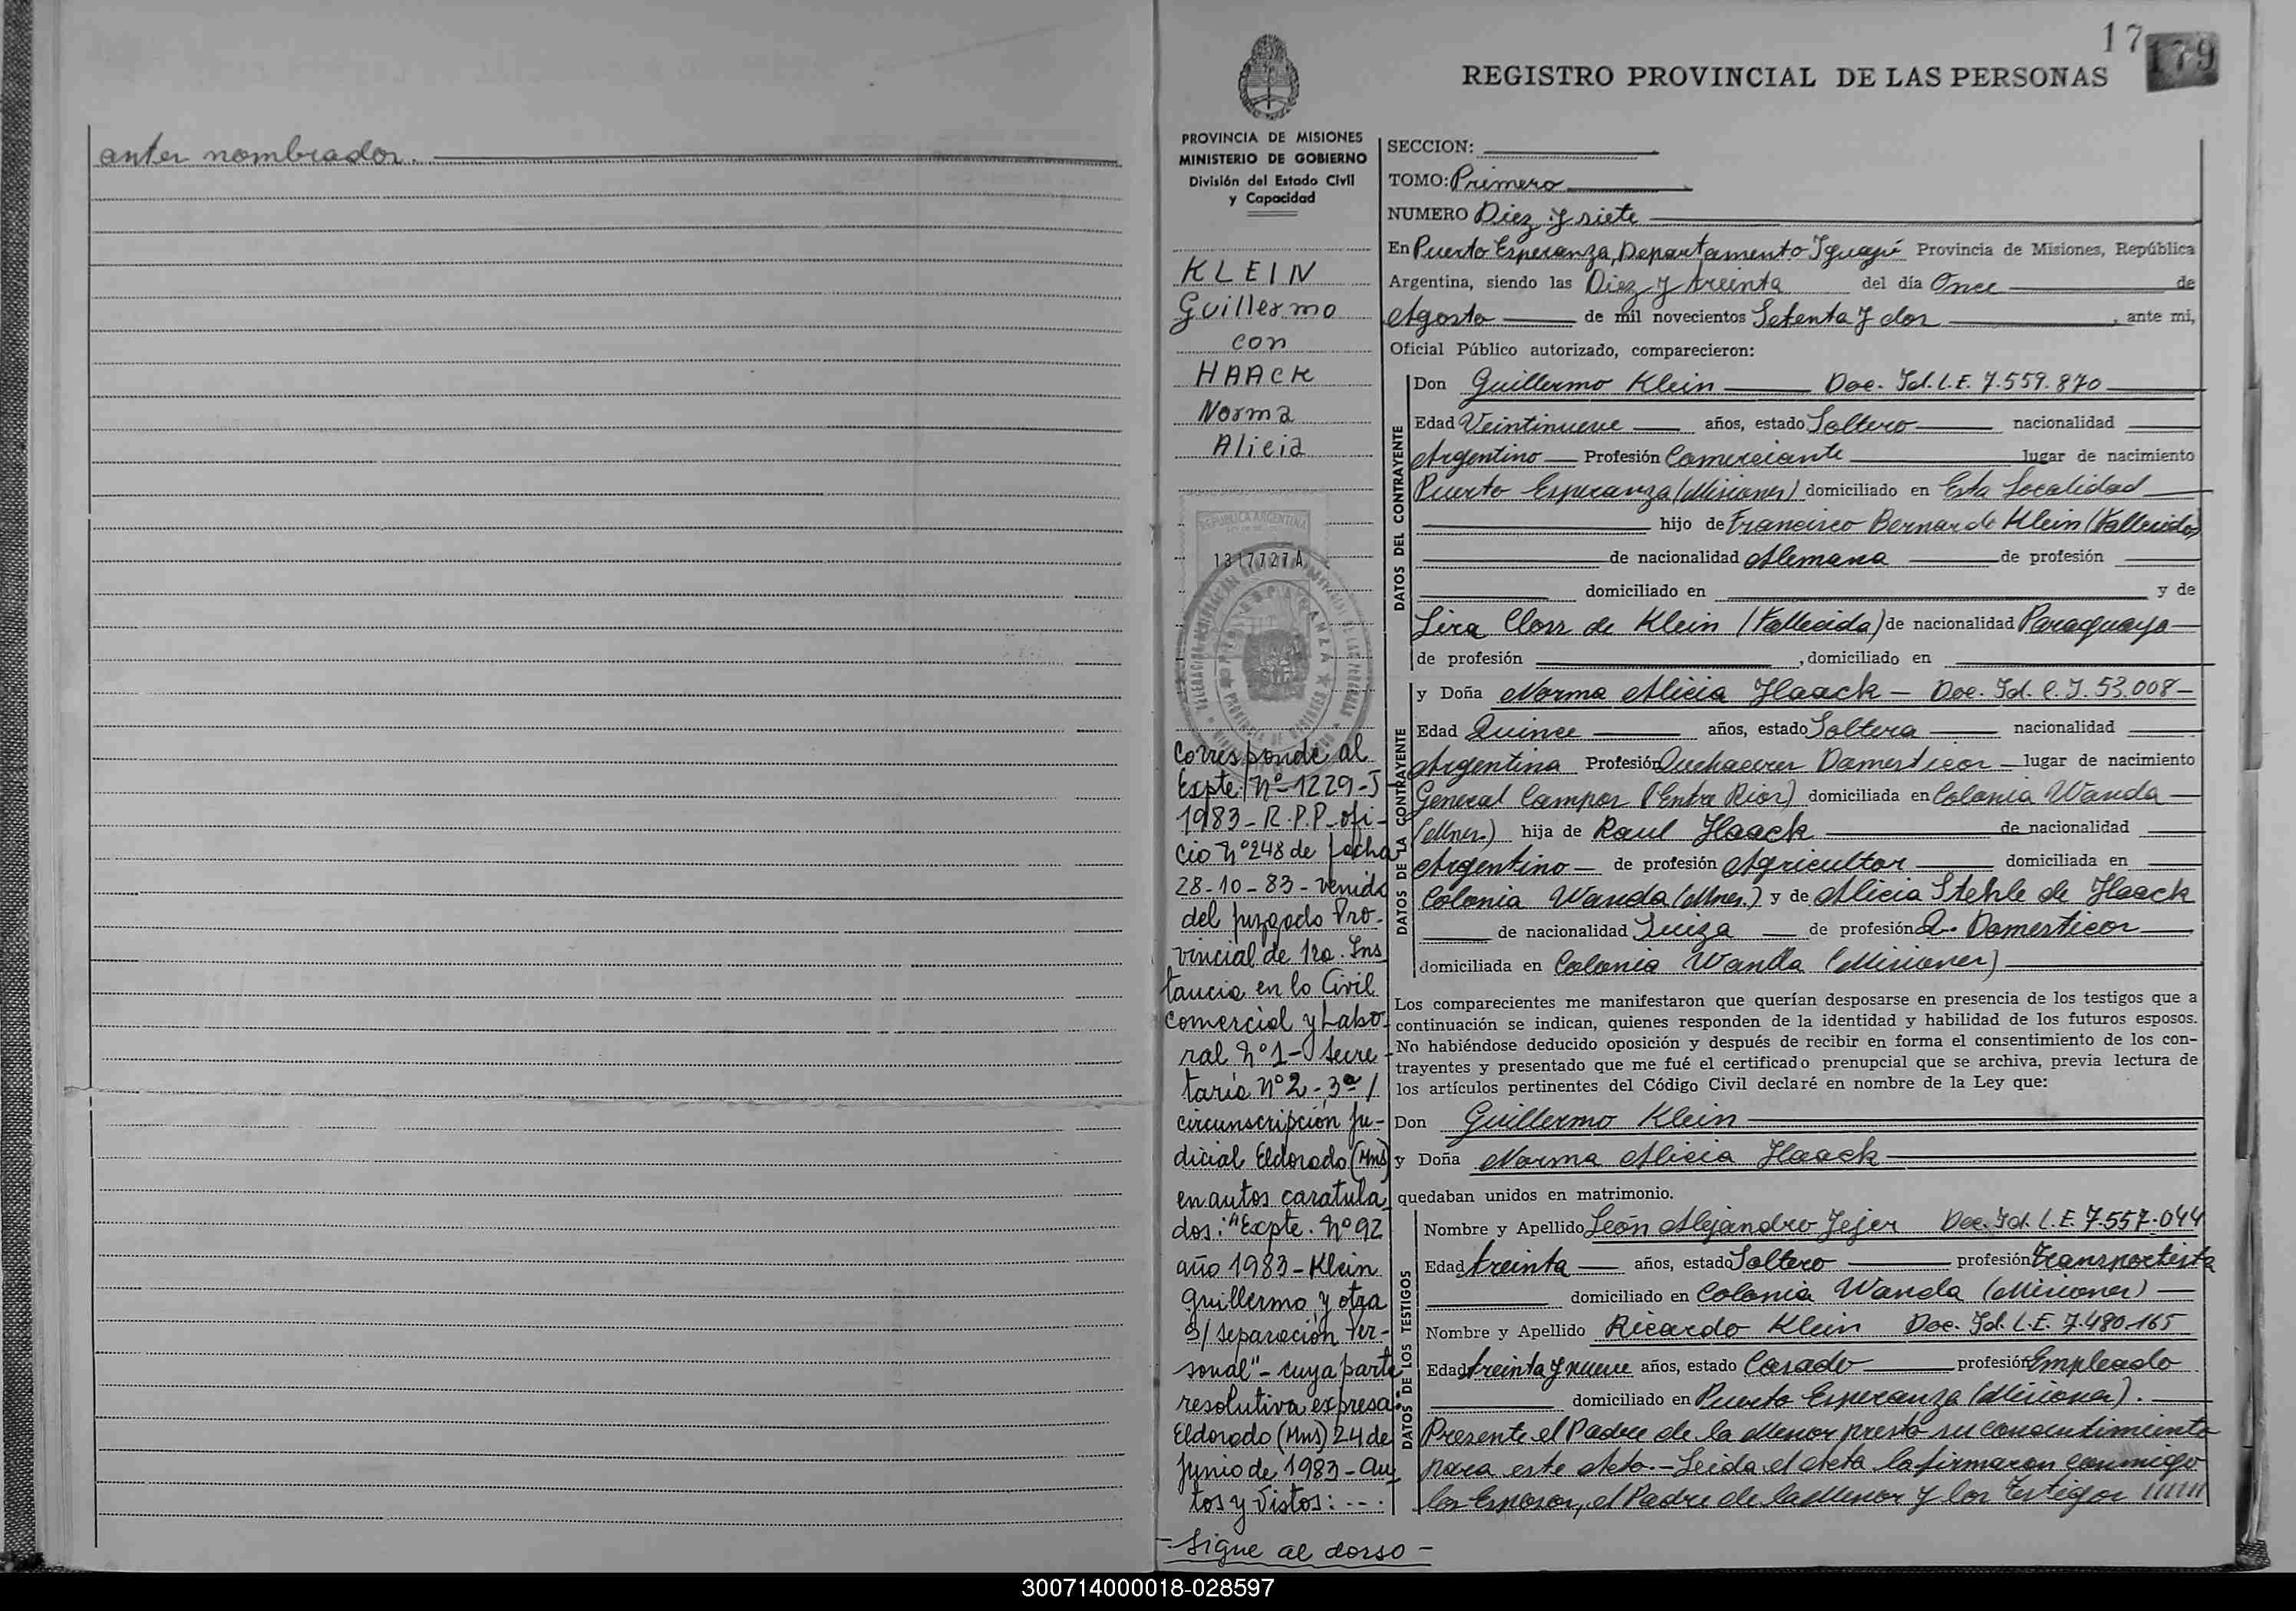 antes nombrados.
17
179
REGISTRO PROVINCIAL DE LAS PERSONAS
PROVINCIA DE MISIONES
MINISTERIO DE GOBIERNO
División del Estado Civil
y Capacidad
KLEIN
Guillermo
con
HAACK
Norma
Alicia
REPUBLICA ARGENTINA
1317727A
Corresponde al
Expte. Nº 1229-J
1983 - R.P.P - ofi-
cio Nº 248 de fecha
28-10-83 - venido
del juzgado Pro-
vincial de 1ra. Ins
tancia en lo Civil
Comercial y Labo-
ral Nº 1 - Secre-
taría Nº 2 - 3ª /
circunscripción Ju-
dicial Eldorado (Mns)
en autos caratula
dos: "Expte. Nº 92
año 1983 - Klein
Guillermo y otra
s/ separación Per-
sonal" - cuya parte
resolutiva expresa:
Eldorado (Mns) 24 de
Junio de 1983 - Au
tos y Vistos: ---.
- Sigue al dorso -
SECCION:
TOMO: Primero
NUMERO Diez y siete
En Puerto Esperanza, Departamento Iguazú Provincia de Misiones, República
Argentina, siendo las Diez y treinta del día Once de
Agosto de mil novecientos Setenta y dos, ante mi,
Oficial Público autorizado, comparecieron:
DATOS DEL CONTRAYENTE
Don Guillermo Klein Doc. Id. L.E. 7.559.870
Edad Veintinueve años, estado Soltero nacionalidad
Argentino Profesión Comerciante lugar de nacimiento
Puerto Esperanza (Misiones) domiciliado en Esta Localidad
hijo de Francisco Bernardo Klein (Fallecido)
de nacionalidad Alemana de profesión
domiciliado en y de
Lira Closs de Klein (Fallecida) de nacionalidad Paraguaya
de profesión , domiciliado en
DATOS DE LA CONTRAYENTE
y Doña Norma Alicia Haack - Doc. Id. C.I. 53.008-
Edad Quince años, estado Soltera nacionalidad
Argentina Profesión Quehaceres Domesticos lugar de nacimiento
General Campos (Entre Rios) domiciliada en Colonia Wanda
(Mnes.) hija de Raul Haack de nacionalidad
Argentino de profesión Agricultor domiciliada en
Colonia Wanda (Mnes.) y de Alicia Stehle de Haack
de nacionalidad Suiza de profesión Q. Domesticos
domiciliada en Colonia Wanda (Misiones)
Los comparecientes me manifestaron que querían desposarse en presencia de los testigos que a
continuación se indican, quienes responden de la identidad y habilidad de los futuros esposos.
No habiéndose deducido oposición y después de recibir en forma el consentimiento de los con-
trayentes y presentado que me fué el certificado prenupcial que se archiva, previa lectura de
los artículos pertinentes del Código Civil declaré en nombre de la Ley que:
Don Guillermo Klein
y Doña Norma Alicia Haack
quedaban unidos en matrimonio.
DATOS DE LOS TESTIGOS
Nombre y Apellido León Alejandro Jejer Doc. Id. L.E. 7.557.044
Edad treinta años, estado Soltero profesión transportista
domiciliado en Colonia Wanda (Misiones)
Nombre y Apellido Ricardo Klein Doc. Id. L.E. 7.480.165
Edad treinta y nueve años, estado Casado profesión Empleado
domiciliado en Puerto Esperanza (Misiones).
Presente el Padre de la Menor presta su consentimiento
para este Acto. - Leida el Acta la firmaron conmigo
los Esposos, el Padre de la Menor y los Testigos
300714000018-028597